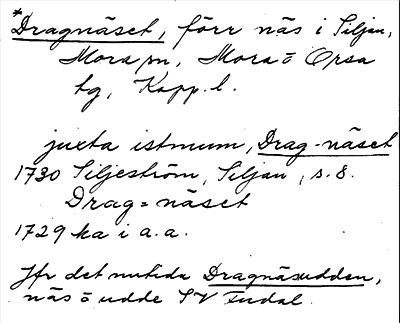 *Dragnäset, förr näs i Siljan,
Mora sn, Mora o Orsa
tg, Kopp. l.
juxta istmum, Drag-näset
1730 Siljeström, Siljan, s. 8.
Drag=näset
1729 ka i a.a.
Jfr det nutida Dragnäsudden,
näs o udde SV